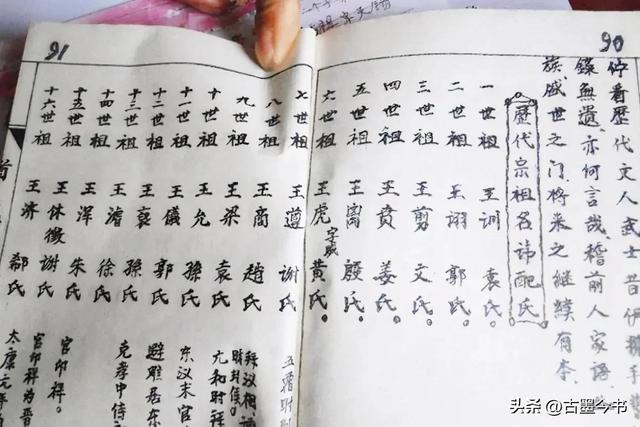 90
佇看歷代文人武士昔伊挪手
錄無遺亦何言哉稽前人家語
族盛世之门将来之继续有本
歷代宗祖名讳配氏
一世祖 王训 袁氏
二世祖 王翊 郭氏
三世祖 王剪 文氏
四世祖 王贲 姜氏
五世祖 王离 殷氏
六世祖 王虎 字威 黄氏
91
七世祖 王遵 谢氏 五
八世祖 王商 赵氏
九世祖 王梁 袁氏 拜议相
十世祖 王允 孫氏 尤和时拜
十一世祖 王儀 郭氏 东汉末官
十二世祖 王裒 孫氏 避难居东
十三世祖 王濬 徐氏 克孝中侍
十四世祖 王浑 朱氏
十五世祖 王休徵 谢氏 官卯祥
十六世祖 王济 郗氏 官卯祥为晋
太康元年
头条 @古墨今书